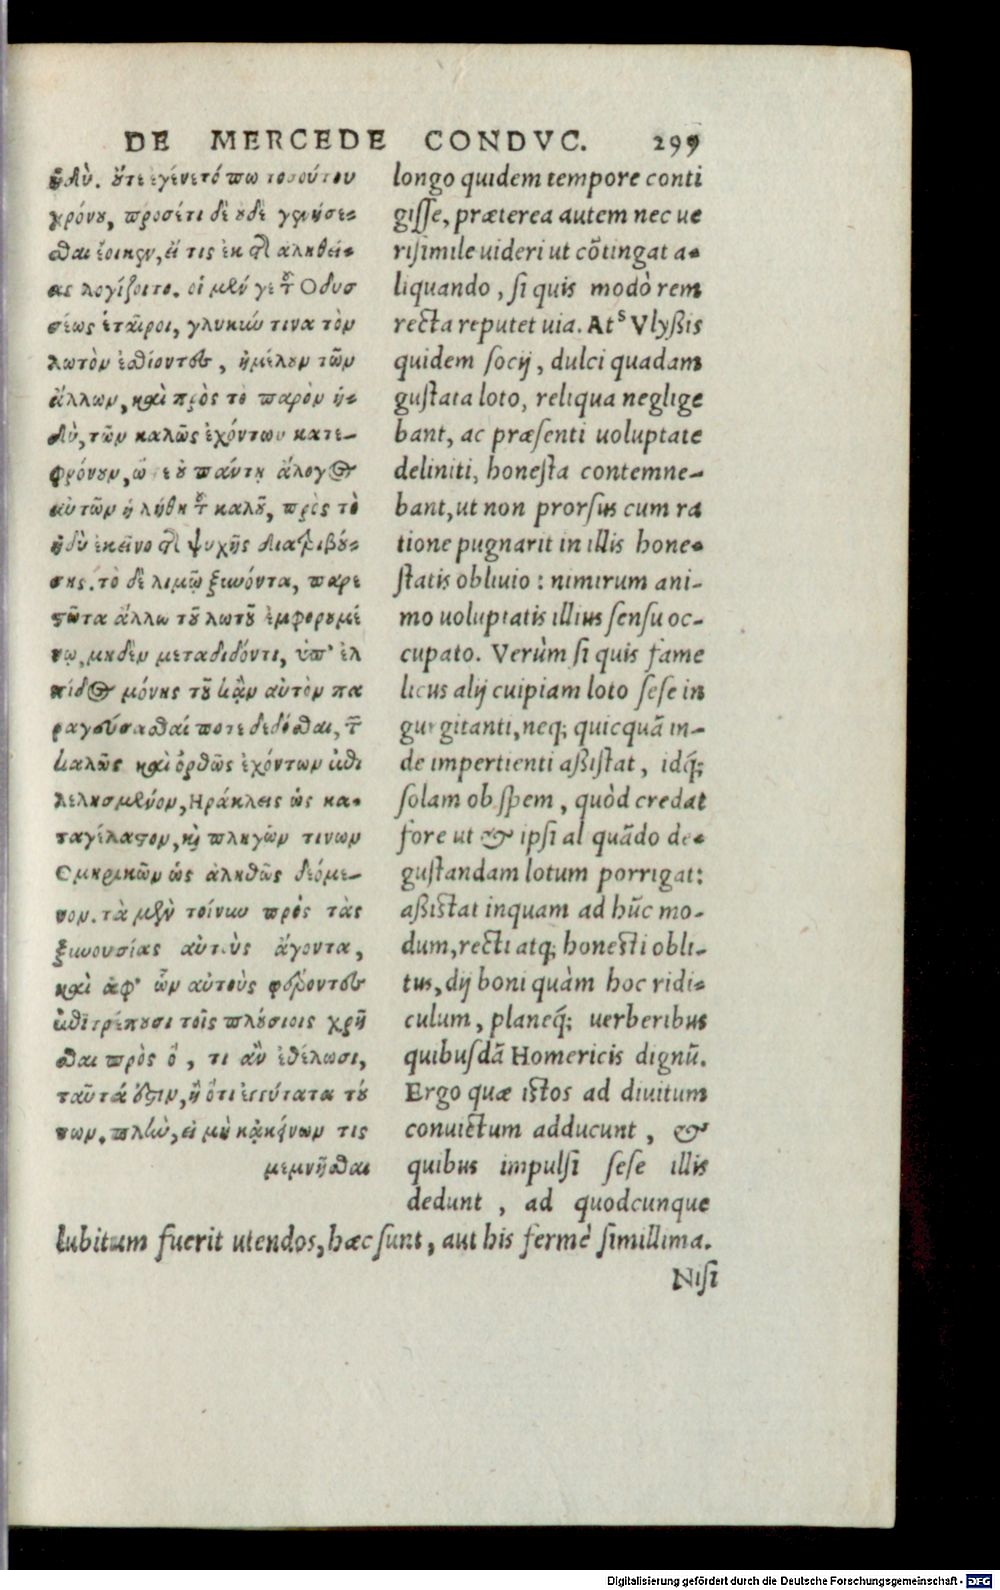 DE MERCEDE CONDVC. 299
ἡδὺ. οὔτε ἐγένετό πω τοσούτου
χρόνου, προσέτι δὲ οὐδὲ γενήσε-
σθαι ἔοικεν, εἴ τις ἐκ τῆς ἀληθεί-
ας λογίζοιτο. οἱ μέν γε τοῦ Οδυσ
σέως ἑταῖροι, γλυκύν τινα τὸν
λωτὸν ἐσθίοντες, ἠμέλουν τῶν
ἄλλων, καὶ πρὸς τὸ παρὸν ἡ-
δὺ, τῶν καλῶς ἐχόντων κατε-
φρόνουν, ὥστε οὐ πάντη ἄλογος
αὐτῶν ἡ λήθη τοῦ καλοῦ, πρὸς τὸ
ἡδὺ ἐκεῖνο τῆς ψυχῆς διατριβού-
σης. τὸ δὲ λιμῷ ξυνόντα, παρε
στῶτα ἄλλω τοῦ λωτοῦ ἐμφορουμέ
νῳ, μηδὲν μεταδιδόντι, ὑπ' ἐλ
πίδος μόνης τοῦ κἂν αὐτὸν πα
ραγεύσασθαί ποτε δεδέσθαι, τῶν
καλῶς καὶ ὀρθῶς ἐχόντων ἐπι
λελησμένον, Ηράκλεις ὡς κα-
ταγέλαστον, καὶ πληγῶν τινων
Ομηρικῶν ὡς ἀληθῶς δεόμε-
νον. τὰ μὲν τοίνυν πρὸς τὰς
ξυνουσίας αὐτοὺς ἄγοντα,
καὶ ἀφ' ὧν αὐτοὺς φέροντες
ἐπιτρέπουσι τοῖς πλουσίοις χρῆ
σθαι πρὸς ὅ, τι ἂν ἐθέλωσι,
ταῦτά ἐστιν, ἢ ὅτι ἐγγύτατα τού
των. πλὴν, εἰ μὴ κἀκείνων τις
μεμνῆσθαι
longo quidem tempore conti
gisse, præterea autem nec ue
risimile uideri ut cōtingat a-
liquando, si quis modò rem
recta reputet uia. Atˢ Vlyßis
quidem socij, dulci quadam
gustata loto, reliqua neglige
bant, ac præsenti uoluptate
deliniti, honesta contemne-
bant, ut non prorsus cum ra
tione pugnarit in illis hone-
statis obliuio: nimirum ani-
mo uoluptatis illius sensu oc-
cupato. Verùm si quis fame
licus alij cuipiam loto sese in
gurgitanti, neq; quicquā in-
de impertienti aßistat, idq́;
solam ob spem, quòd credat
fore ut & ipsi al quādo de-
gustandam lotum porrigat:
aßistat inquam ad hūc mo-
dum, recti atq; honesti obli-
tus, dij boni quàm hoc ridi-
culum, planeq́; uerberibus
quibusdā Homericis dignū.
Ergo quæ istos ad diuitum
conuictum adducunt, &
quibus impulsi sese illis
dedunt, ad quodcunque
lubitum fuerit utendos, hæc sunt, aut his fermè simillima.
Nisi
Digitalisierung gefördert durch die Deutsche Forschungsgemeinschaft - DFG